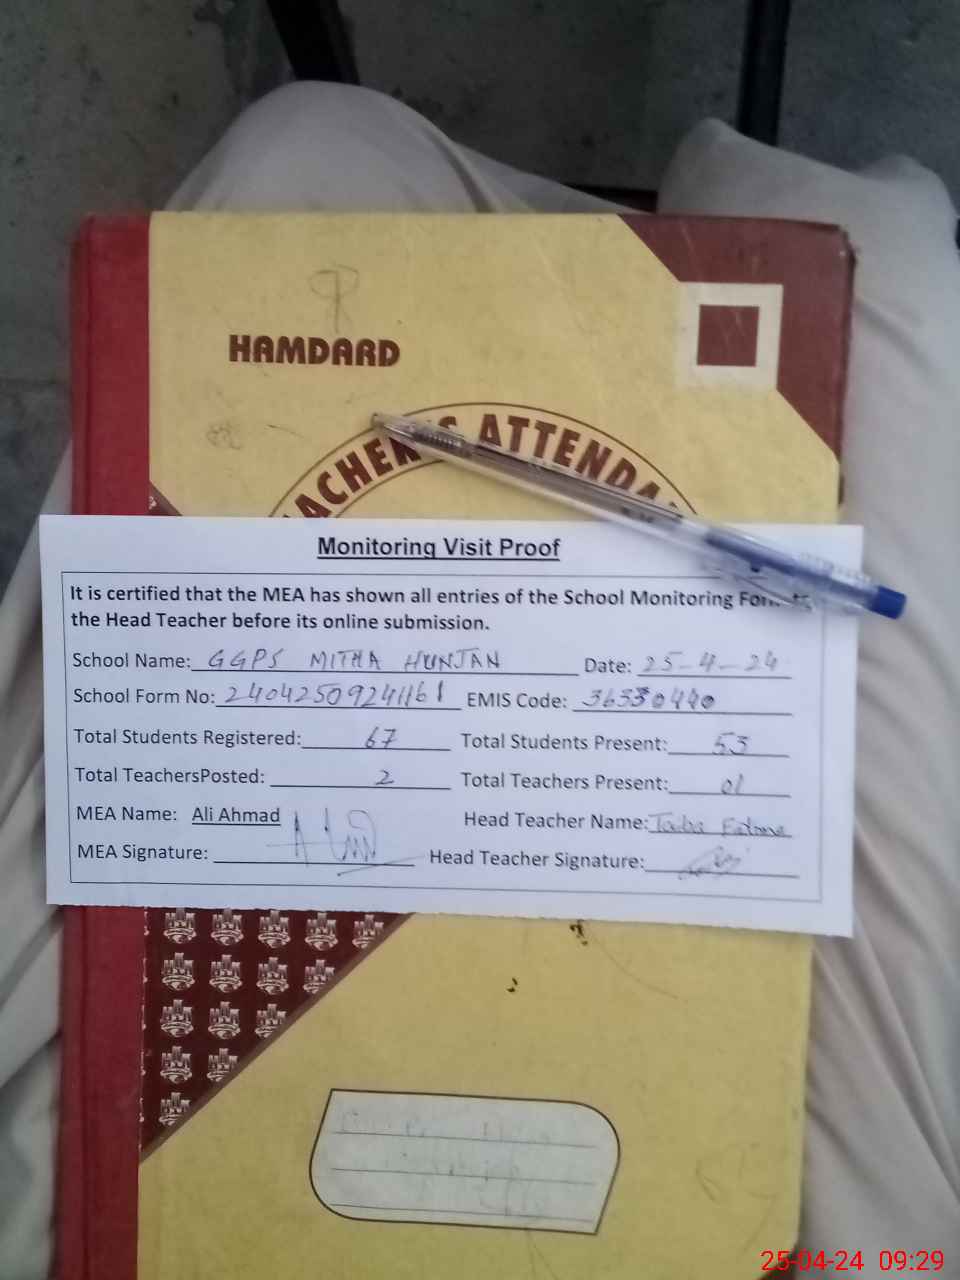 HAMDARD
TEACHER'S ATTENDA
Monitoring Visit Proof
It is certified that the MEA has shown all entries of the School Monitoring Form to
the Head Teacher before its online submission.
School Name: GGPS MITHA HUNJAN Date: 25-4-24
School Form No: 24042509241161 EMIS Code: 36330440
Total Students Registered: 67 Total Students Present: 53
Total TeachersPosted: 2 Total Teachers Present: 01
MEA Name: Ali Ahmad Head Teacher Name: Taiba Fatima
MEA Signature: Head Teacher Signature:
25-04-24 09:29